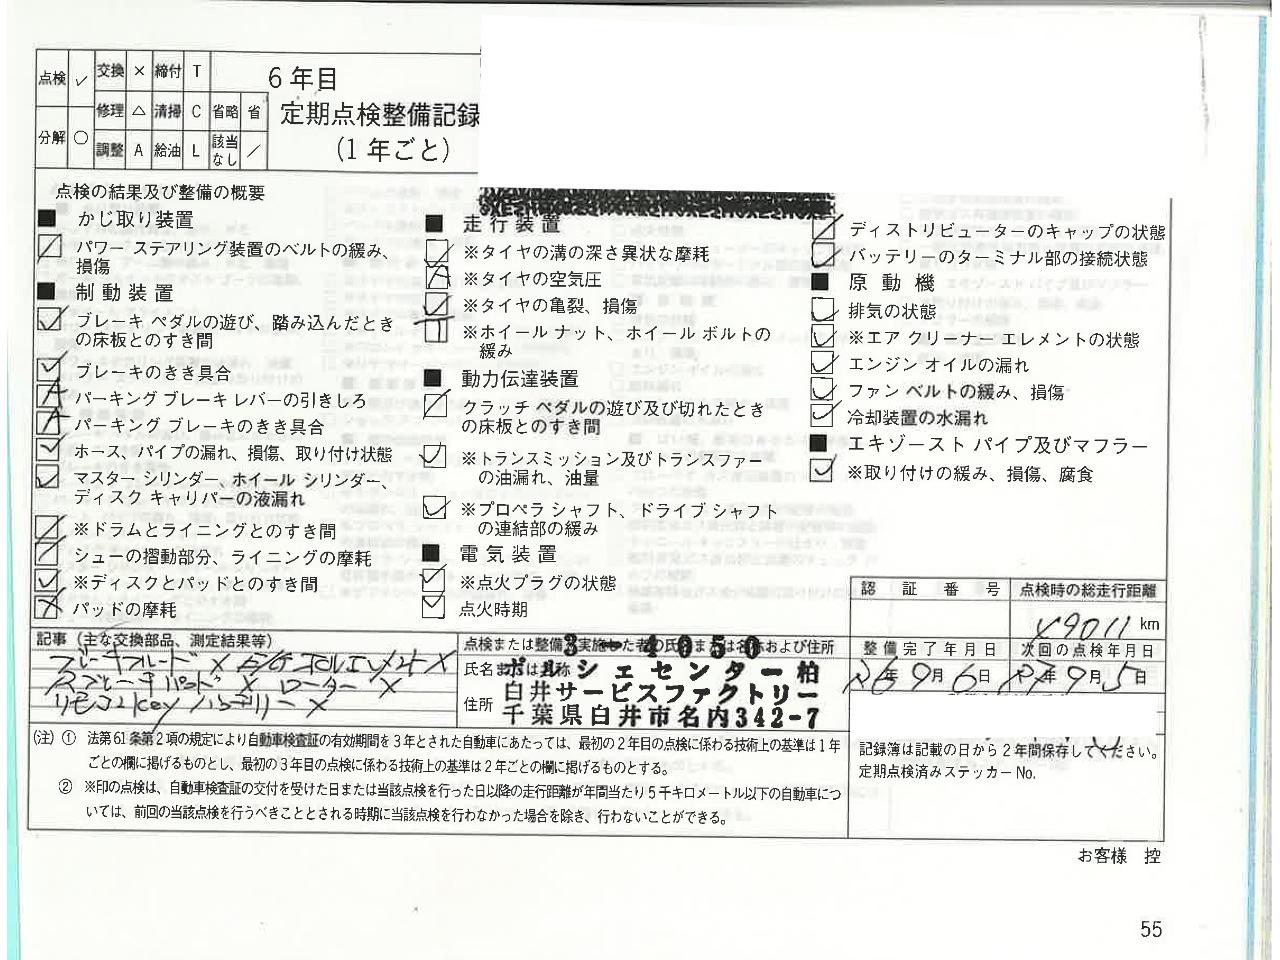 点検 ✓ 交換 × 締付 T
修理 △ 清掃 C 省略 省
分解 ○ 調整 A 給油 L 該当なし ／
6年目
定期点検整備記録
(1年ごと)
点検の結果及び整備の概要
■ かじ取り装置
パワー ステアリング装置のベルトの緩み、
損傷
■ 制動装置
ブレーキ ペダルの遊び、踏み込んだとき
の床板とのすき間
ブレーキのきき具合
パーキング ブレーキ レバーの引きしろ
パーキング ブレーキのきき具合
ホース、パイプの漏れ、損傷、取り付け状態
マスター シリンダー、ホイール シリンダー、
ディスク キャリパーの液漏れ
※ドラムとライニングとのすき間
シューの摺動部分、ライニングの摩耗
※ディスクとパッドとのすき間
パッドの摩耗
■ 走行装置
※タイヤの溝の深さ異状な摩耗
※タイヤの空気圧
※タイヤの亀裂、損傷
※ホイール ナット、ホイール ボルトの
緩み
■ 動力伝達装置
クラッチ ペダルの遊び及び切れたとき
の床板とのすき間
※トランスミッション及びトランスファー
の油漏れ、油量
※プロペラ シャフト、ドライブ シャフト
の連結部の緩み
■ 電気装置
※点火プラグの状態
点火時期
ディストリビューターのキャップの状態
バッテリーのターミナル部の接続状態
■ 原動機
排気の状態
※エア クリーナー エレメントの状態
エンジン オイルの漏れ
ファン ベルトの緩み、損傷
冷却装置の水漏れ
■ エキゾースト パイプ及びマフラー
※取り付けの緩み、損傷、腐食
記事 (主な交換部品、測定結果等)
ブレーキフルード × E/G オイル エレメント ×
ブレーキパッド × ローター ×
リモコンKey バッテリー ×
点検または整備を実施した者の氏名または名称および住所
3-4050
氏名または名称 ポルシェセンター柏
白井サービスファクトリー
住所 千葉県白井市名内342-7
認証番号 点検時の総走行距離
49011 km
整備完了年月日 次回の点検年月日
26年9月6日 27年9月5日
記録簿は記載の日から2年間保存してください。
定期点検済みステッカーNo.
(注) ① 法第61条第2項の規定により自動車検査証の有効期間を3年とされた自動車にあたっては、最初の2年目の点検に係わる技術上の基準は1年
ごとの欄に掲げるものとし、最初の3年目の点検に係わる技術上の基準は2年ごとの欄に掲げるものとする。
② ※印の点検は、自動車検査証の交付を受けた日または当該点検を行った日以降の走行距離が年間当たり5千キロメートル以下の自動車につ
いては、前回の当該点検を行うべきこととされる時期に当該点検を行わなかった場合を除き、行わないことができる。
お客様 控
55